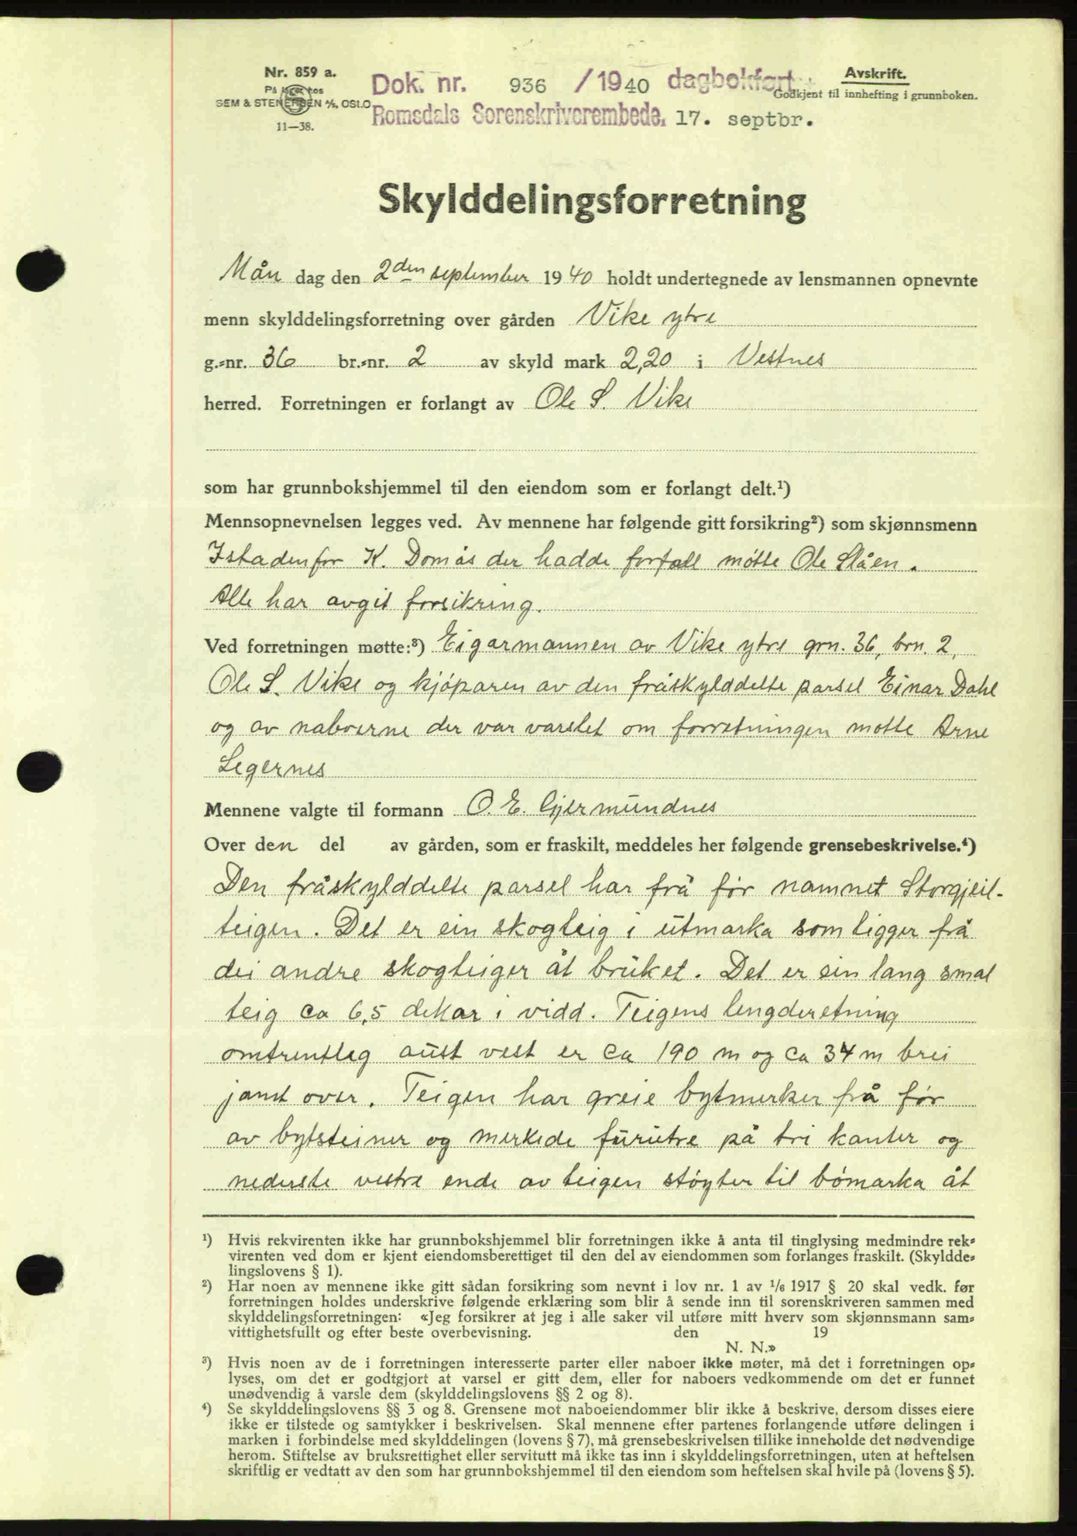 Nr. 859 a.
På lager hos
SEM & STENERSEN A/S, OSLO
11—38.
Dok. nr. 936 /1940 dagbokført
Romsdals Sorenskriverembede, 17. septbr.
Avskrift.
Godkjent til innhefting i grunnboken.
Skylddelingsforretning
Mån dag den 2den september 1940 holdt undertegnede av lensmannen opnevnte
menn skylddelingsforretning over gården Vike ytre
g.-nr. 36 br.-nr. 2 av skyld mark 2,20 i Vestnes
herred. Forretningen er forlangt av Ole S. Vike
som har grunnbokshjemmel til den eiendom som er forlangt delt.¹)
Mennsopnevnelsen legges ved. Av mennene har følgende gitt forsikring²) som skjønnsmenn
Istadenfor K. Domås der hadde forfall møtte Ole Slåen.
Alle har avgit forsikring.
Ved forretningen møtte:³) Eigarmannen av Vike ytre grn. 36, brn. 2,
Ole S. Vike og kjøparen av den fråskylddelte parsel Einar Dahl
og av naboerne der var varslet om forretningen møtte Arne
Legernes
Mennene valgte til formann O. E. Gjermundnes
Over den del av gården, som er fraskilt, meddeles her følgende grensebeskrivelse.⁴)
Den fråskylddelte parsel har frå før namnet Storgjeil-
teigen. Det er ein skogteig i utmarka som ligger frå
dei andre skogteiger åt bruket. Det er ein lang smal
teig ca 6,5 dekar i vidd. Teigens lengderetning
omtrentleg aust vest er ca 190 m og ca 34 m brei
jamt over. Teigen har greie bytmerker frå før
av bytsteiner og merkede furutre på tri kanter og
nederste vestre ende av teigen støyter til bømarka åt
¹) Hvis rekvirenten ikke har grunnbokshjemmel blir forretningen ikke å anta til tinglysing medmindre rek-
virenten ved dom er kjent eiendomsberettiget til den del av eiendommen som forlanges fraskilt. (Skyldde-
lingslovens § 1).
²) Har noen av mennene ikke gitt sådan forsikring som nevnt i lov nr. 1 av 1/6 1917 § 20 skal vedk. før
forretningen holdes underskrive følgende erklæring som blir å sende inn til sorenskriveren sammen med
skylddelingsforretningen: «Jeg forsikrer at jeg i alle saker vil utføre mitt hverv som skjønnsmann sam-
vittighetsfullt og efter beste overbevisning. den 19
N. N.»
³) Hvis noen av de i forretningen interesserte parter eller naboer ikke møter, må det i forretningen op-
lyses, om det er godtgjort at varsel er gitt dem, eller for naboers vedkommende om det er funnet
unødvendig å varsle dem (skylddelingslovens §§ 2 og 8).
⁴) Se skylddelingslovens §§ 3 og 8. Grensene mot naboeiendommer blir ikke å beskrive, dersom disses eiere
ikke er tilstede og samtykker i beskrivelsen. Skal mennene efter partenes forlangende utføre delingen i
marken i forbindelse med skylddelingen (lovens § 7), må grensebeskrivelsen tillike inneholde det nødvendige
herom. Stiftelse av bruksrettighet eller servitutt må ikke tas inn i skylddelingsforretningen, uten at heftelsen
skriftlig er vedtatt av den som har grunnbokshjemmel til den eiendom som heftelsen skal hvile på (lovens § 5).